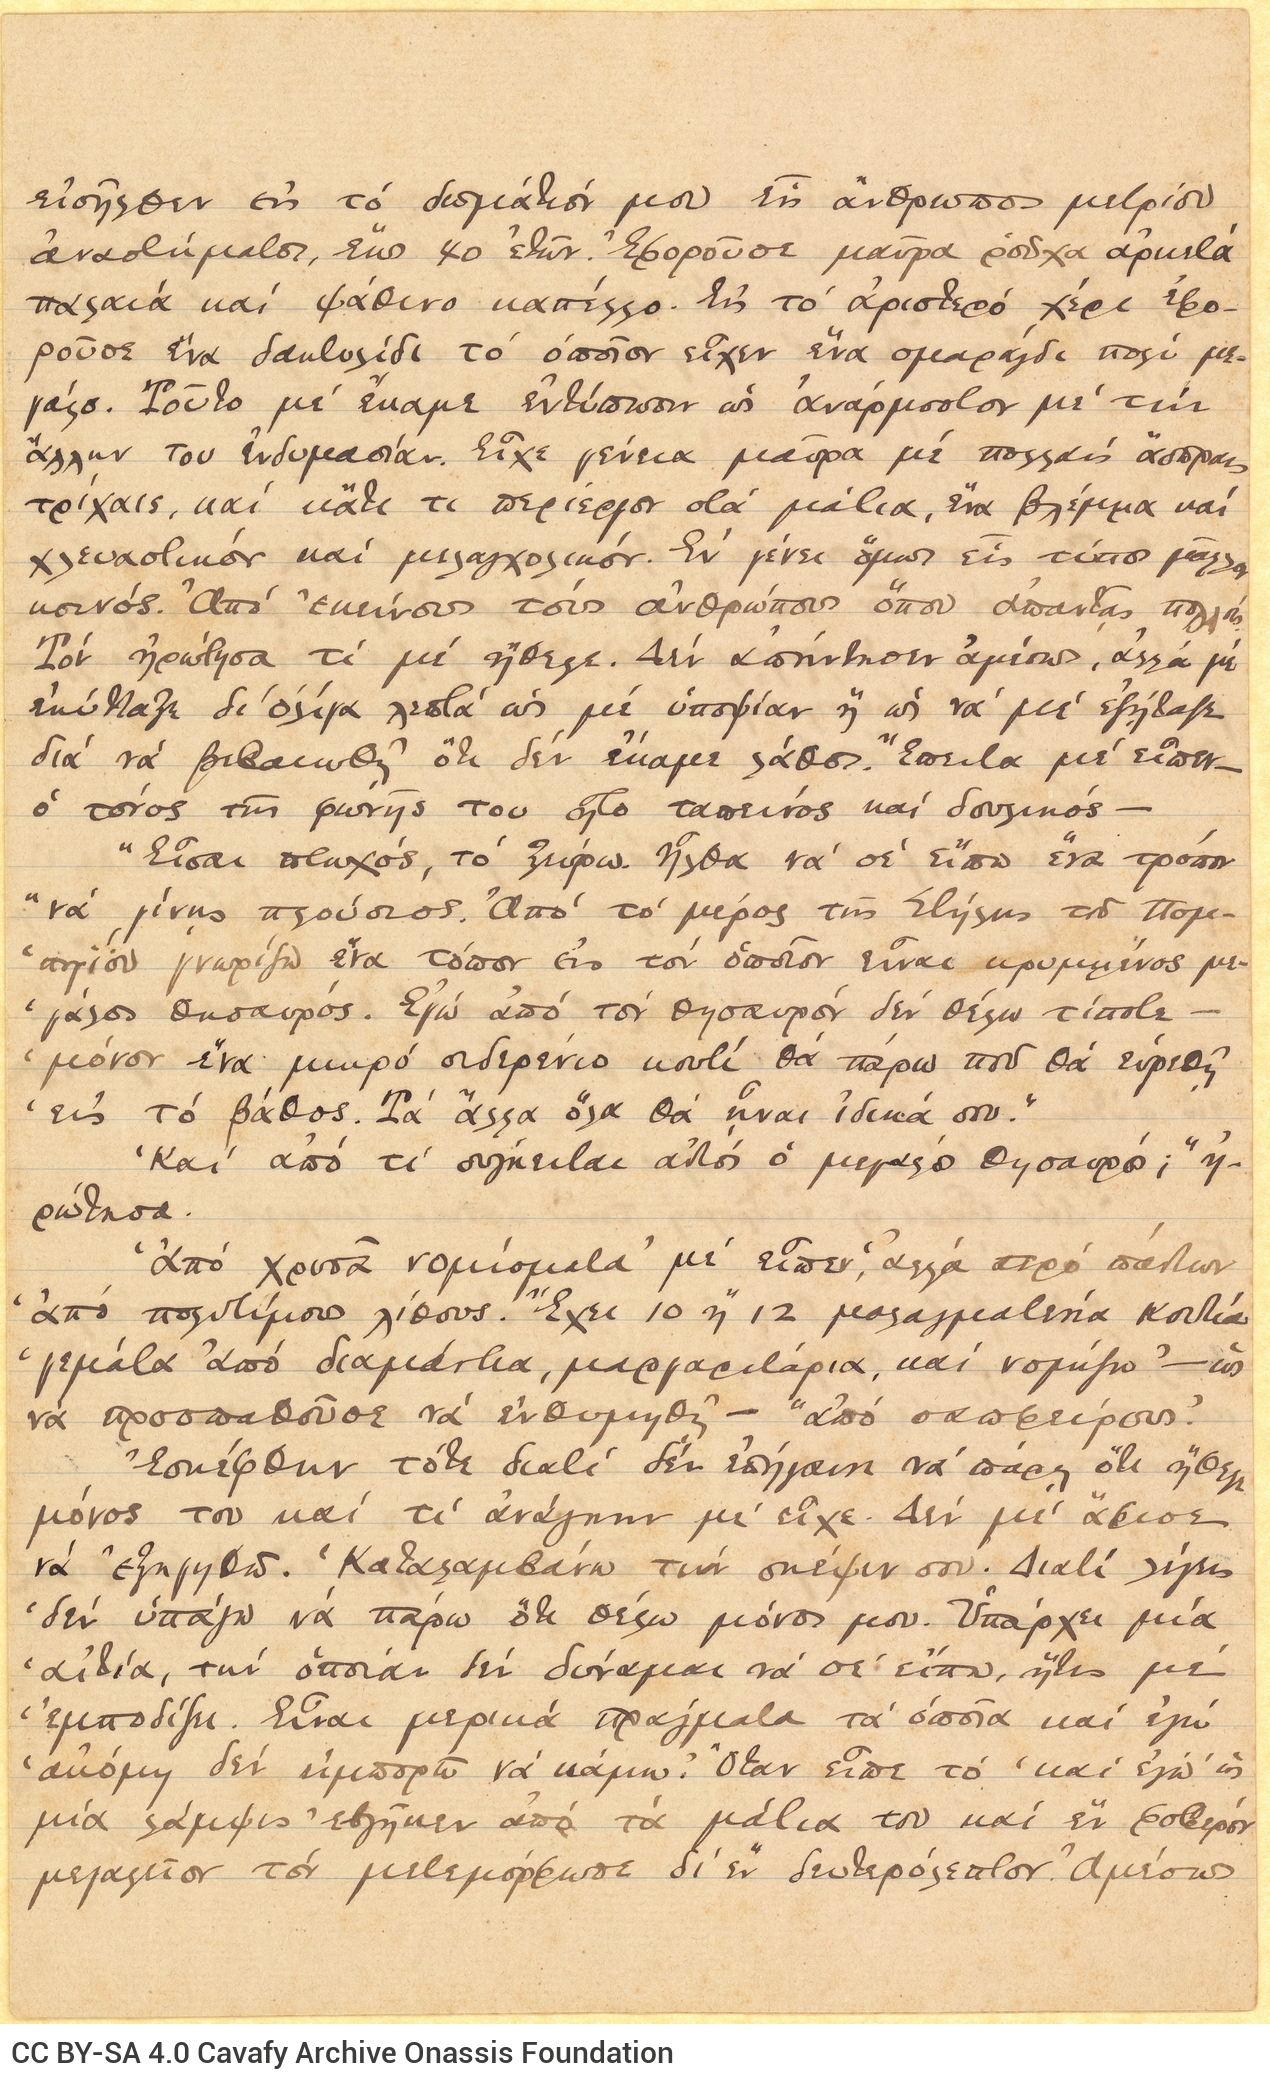 εἰσῆλθεν εἰς τό δωμάτιόν μου εἷς ἄνθρωπος μετρίου
ἀναστήματος, ἕως 40 ἐτῶν. Ἐφοροῦσε μαῦρα ῥοῦχα ἀρκετά
παλαιά καί ψάθινο καπέλλο. Εἰς τό ἀριστερό χέρι ἐφο-
ροῦσε ἕνα δακτυλίδι τό ὁποῖον εἶχεν ἕνα σμαράγδι πολύ με-
γάλο. Τοῦτο μέ ἔκαμε ἐντύπωσιν ὡς ἀνάρμοστον μέ τήν
ἄλλην του ἐνδυμασίαν. Εἶχε γένεια μαῦρα μέ πολλαίς ἄσπραις
τρίχαις, καί κἄτι τι περίεργον στά μάτια, ἕνα βλέμμα καί
χλευαστικόν καί μελαγχολικόν. Ἐν γένει ὅμως εἷς τύπος μᾶλλον
κοινός. Ἀπό ἐκείνους τούς ἀνθρώπους ὅπου ἀπαντᾷς πολλούς.
Τόν ἠρώτησα τί μέ ἤθελε. Δέν ἀπήντησεν ἀμέσως, ἀλλά μέ
ἐκύτταξε δι' ὀλίγα λεπτά ὡς μέ ὑποψίαν ἤ ὡς νά μέ ἐξήταζε
διά νά βεβαιωθῇ ὅτι δέν ἔκαμε λάθος. Ἔπειτα μέ εἶπεν—
ὁ τόνος τῆς φωνῆς του ἦτο ταπεινός καί δουλικός—
"Εἶσαι πτωχός, τό ξεύρω. Ἦλθα νά σέ εἴπω ἕνα τρόπον
"νά γίνῃς πλούσιος. Ἀπό τό μέρος τῆς Στήλης τοῦ Πομ-
'πηίου γνωρίζω ἕνα τόπον εἰς τόν ὁποῖον εἶναι κρυμμένος με-
'γάλος θησαυρός. Ἐγώ ἀπό τόν θησαυρόν δέν θέλω τίποτε —
'μόνον ἕνα μικρό σιδερένιο κουτί θά πάρω ποῦ θά εὑρεθῇ
'εἰς τό βάθος. Τά ἄλλα ὅλα θά ᾖναι ἰδικά σου."
'Καί ἀπό τί σύγκειται αὐτός ὁ μεγάλος θησαυρός;" ἠ-
ρώτησα.
'Ἀπό χρυσᾶ νομίσματα' μέ εἶπεν, 'ἀλλά πρό πάντων
'ἀπό πολυτίμους λίθους. Ἔχει 10 ἤ 12 μαλαγματένια κουτιά
'γεμάτα ἀπό διαμάντια, μαργαριτάρια, καί νομίζω'—ὡς
νά προσπαθοῦσε νά ἐνθυμηθῇ— "ἀπό σαπφείρους."
Ἐσκέφθην τότε διατί δέν ἐπήγαινε νά πάρῃ ὅτι ἤθελε
μόνος του καί τί ἀνάγκην μέ εἶχε. Δέν μέ ἄφισε
νά ἐξηγηθῶ. 'Καταλαμβάνω τήν σκέψιν σου. Διατί λέγεις
'δέν ὑπάγω νά πάρω ὅτι θέλω μόνος μου. Ὑπάρχει μία
'αἰτία, τήν ὁποίαν δέν δύναμαι νά σέ εἴπω, ἥτις μέ
'ἐμποδίζει. Εἶναι μερικά πράγματα τά ὁποῖα καί ἐγώ
'ἀκόμη δέν ἠμπορῶ νά κάμω.' Ὅταν εἶπε τό 'καί ἐγώ' ὡς
μία λάμψις ἐβγῆκεν ἀπό τά μάτια του καί ἕν φοβερόν
μεγαλεῖον τόν μετεμόρφωσε δι' ἕν δευτερόλεπτον. Ἀμέσως
CC BY-SA 4.0 Cavafy Archive Onassis Foundation